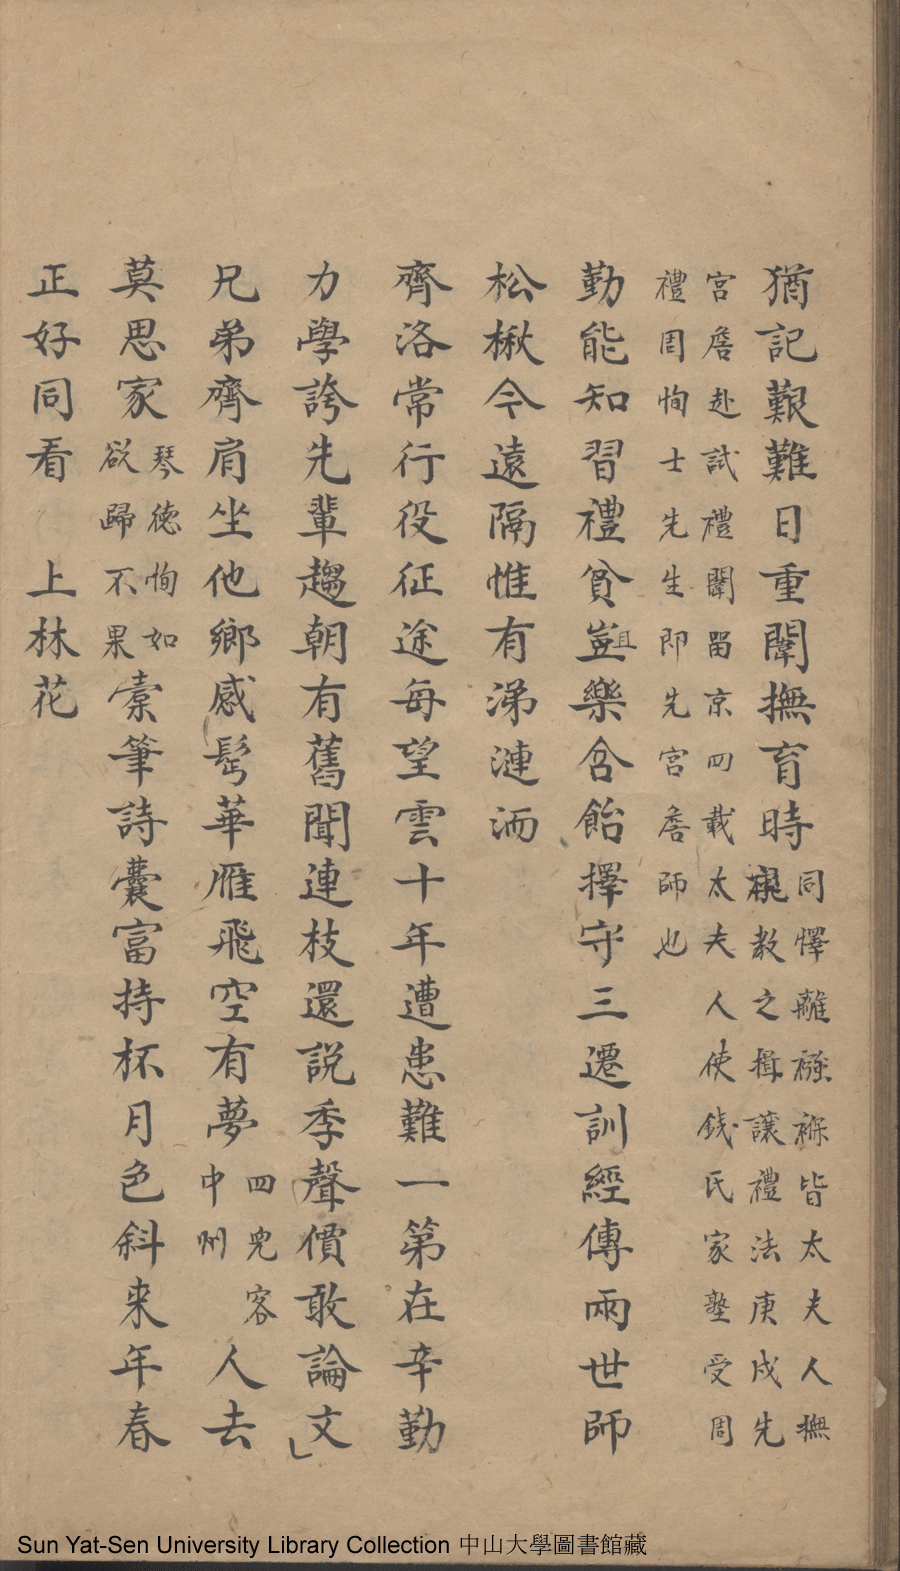 猶記艱難日重闈撫育時同懌離襁褓皆太夫人撫
視教之揖讓禮法庚戌先
宮詹赴試禮闈留京四載太夫人使錢氏家塾受周
禮周恂士先生即先宮詹師也
勤能知習禮貧豈且樂含飴擇守三遷訓經傳兩世師
松楸今遠隔惟有涕漣洏
齊洛常行役征途每望雲十年遭患難一第在辛勤
力學誇先輩趨朝有舊聞連枝還說季聲價敢論文
兄弟齊肩坐他鄉感髩華雁飛空有夢四兄客中州人去
莫思家琴德恂如欲歸不果橐筆詩囊富持杯月色斜来年春
正好同看 上林花
Sun Yat-Sen University Library Collection 中山大學圖書館藏